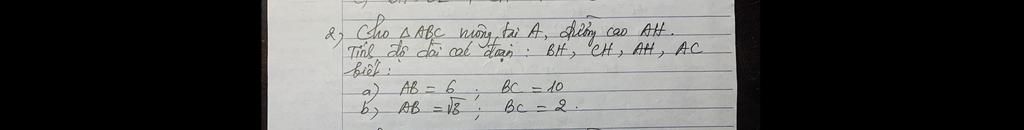 2) Cho △ ABC vuông tại A, đường cao AH.
Tính độ dài các đoạn : BH, CH, AH, AC
biết :
a) AB = 6 ; BC = 10
b) AB = √3 ; BC = 2.